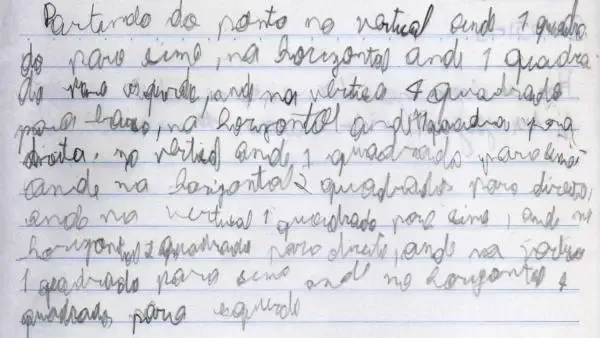 Partindo do ponto no vertical ande 1 quadra
do para cima, na horizontal ande 1 quadra
do para esquerda, ande na vertica 4 quadrado
para baixo, na horizontal ande quadrados para
direita. no vertical ande 1 quadrado para cima
ande na horizontal 2 quadrados para direita,
ande na vertical 1 quadrado para cima, ande na
horizontal 2 quadrado para direita, ande na
1 quadrado para cima ande na horizontal 4
quadrados para esquerda